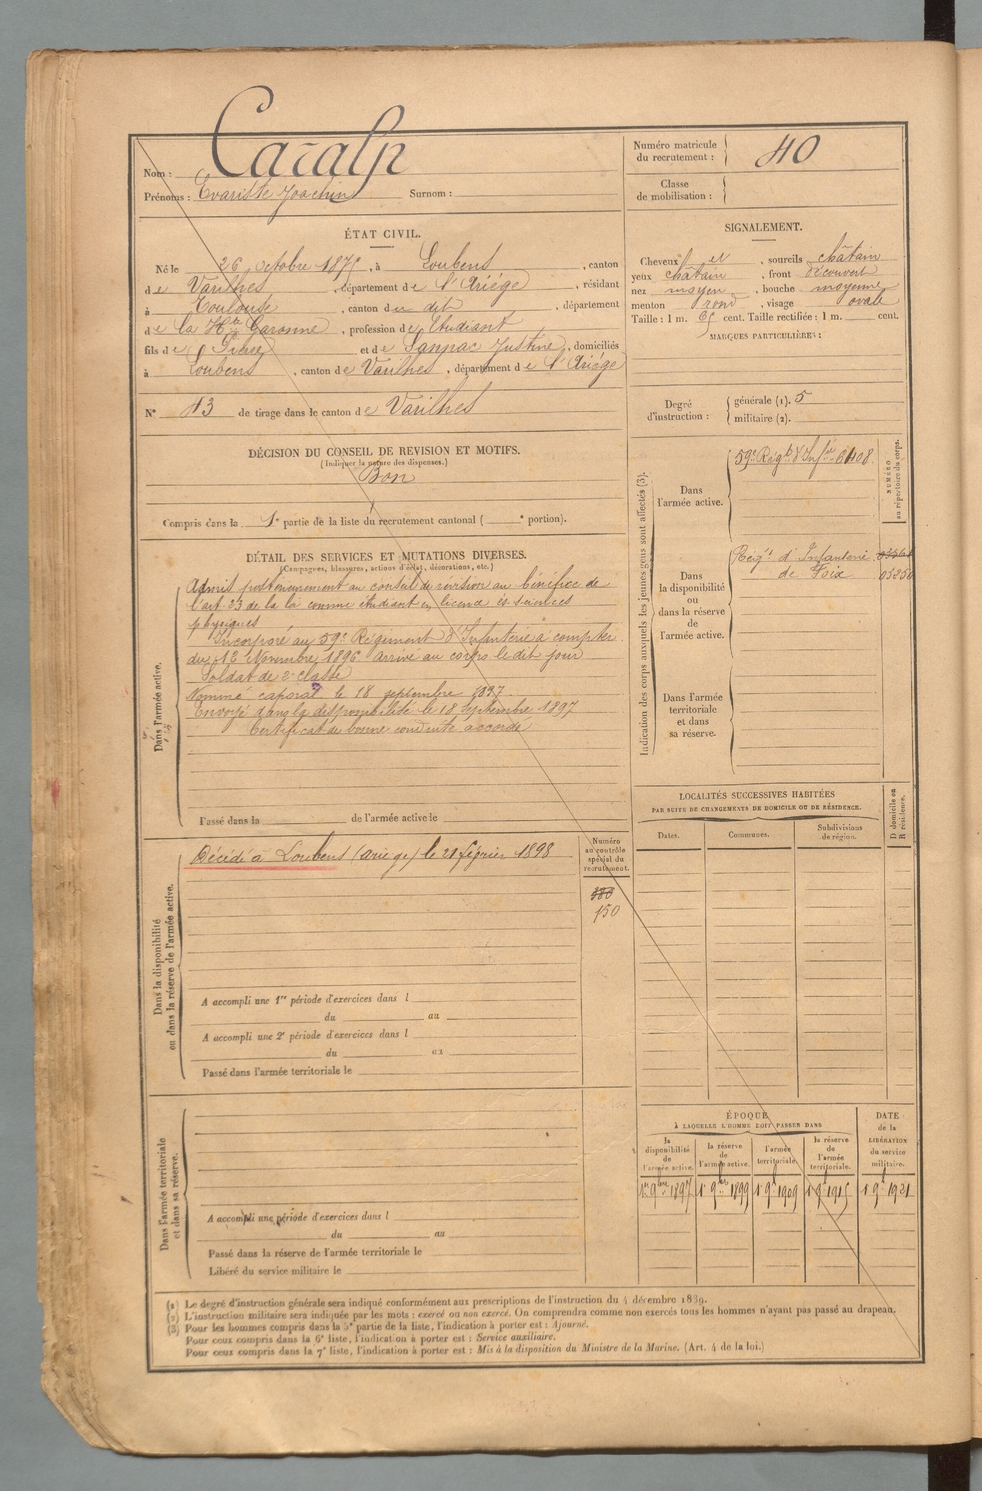 Nom : Caralp
Prénoms : Evariste Joachin Surnom :
Numéro matricule du recrutement : 40
Classe de mobilisation :
ÉTAT CIVIL.
Né le 26 octobre 1875, à Loubens, canton
de Varilhes, département de l'Ariége, résidant
à Toulouse, canton du dit, département
de la Hte Garonne, profession d'Etudiant
fils de Pierre et de Sannac Justine, domiciliés
à Loubens, canton de Varilhes, département de l'Ariége
N° 43 de tirage dans le canton de Varilhes
SIGNALEMENT.
Cheveux et, sourcils châtain
yeux châtain, front découvert
nez moyen, bouche moyenne
menton rond, visage ovale
Taille : 1 m. 65 cent. Taille rectifiée : 1 m. cent.
MARQUES PARTICULIÈRES :
Degré d'instruction : générale (1). 5
militaire (2).
DÉCISION DU CONSEIL DE REVISION ET MOTIFS.
(Indiquer la nature des dispenses.)
Bon
Compris dans la 1e partie de la liste du recrutement cantonal ( e portion).
DÉTAIL DES SERVICES ET MUTATIONS DIVERSES.
(Campagnes, blessures, actions d'éclat, décorations, etc.)
Dans l'armée active.
Admis postérieurement au conseil de révision au bénéfice de
l'art. 23 de la loi comme étudiant en licence ès sciences
physiques
Incorporé au 59e Régiment d'Infanterie à compter
du 12 Novembre 1896 arrivé au corps le dit jour
Soldat de 2e classe
Nommé caporal le 18 septembre 1897
Envoyé dans la disponibilité le 18 septembre 1897
Certificat de bonne conduite accordé
Passé dans la de l'armée active le
Indication des corps auxquels les jeunes gens sont affectés (3).
NUMÉRO au répertoire du corps.
Dans l'armée active.
59e Régt d'Infie 6408
Dans la disponibilité ou dans la réserve de l'armée active.
Régt d'Infanterie
de Foix 03250
Dans l'armée territoriale et dans sa réserve.
LOCALITÉS SUCCESSIVES HABITÉES
PAR SUITE DE CHANGEMENTS DE DOMICILE OU DE RÉSIDENCE.
Dates. Communes. Subdivisions de région. D domicile ou R résidence.
Dans la disponibilité ou dans la réserve de l'armée active.
Décédé à Loubens (ariège) le 21 février 1898
Numéro au contrôle spécial du recrutement.
380
150
A accompli une 1re période d'exercices dans l
du au
A accompli une 2e période d'exercices dans l
du au
Passé dans l'armée territoriale le
Dans l'armée territoriale et dans sa réserve.
A accompli une période d'exercices dans l
du au
Passé dans la réserve de l'armée territoriale le
Libéré du service militaire le
ÉPOQUE
À LAQUELLE L'HOMME DOIT PASSER DANS
la disponibilité de l'armée active. la réserve de l'armée active. l'armée territoriale. la réserve de l'armée territoriale.
DATE de la LIBÉRATION du service militaire.
1er 9bre 1897 1er 9bre 1899 1er 9bre 1909 1er 9bre 1915 1er 9bre 1921
(1) Le degré d'instruction générale sera indiqué conformément aux prescriptions de l'instruction du 4 décembre 1889.
(2) L'instruction militaire sera indiquée par les mots : exercé ou non exercé. On comprendra comme non exercés tous les hommes n'ayant pas passé au drapeau.
(3) Pour les hommes compris dans la 5e partie de la liste, l'indication à porter est : Ajourné.
Pour ceux compris dans la 6e liste, l'indication à porter est : Service auxiliaire.
Pour ceux compris dans la 7e liste, l'indication à porter est : Mis à la disposition du Ministre de la Marine. (Art. 4 de la loi.)